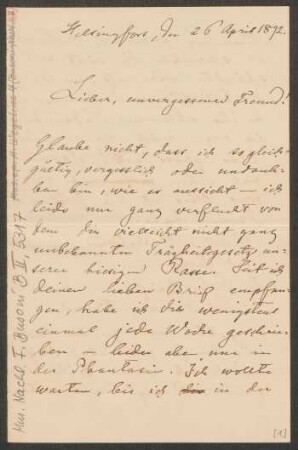 Helsingfors, den 26 April 1892.
Lieber, unvergessener Freund!
Glaube nicht, dass ich so gleich-
gültig, vergesslich oder undank-
bar bin, wie es aussieht – ich
leide nur ganz verflucht von
dem Dir vielleicht nicht ganz
unbekannten Trägheitsgesetz un-
serer hiesigen Rasse. Seit ich
deinen lieben Brief empfan-
gen, habe ich Dir wenigstens
einmal jede Woche geschrie-
ben – leider aber nur in
der Phantasie. Ich wollte
warten, bis ich in der
Mus. Nachl. F. Busoni B II, 5317
[1]